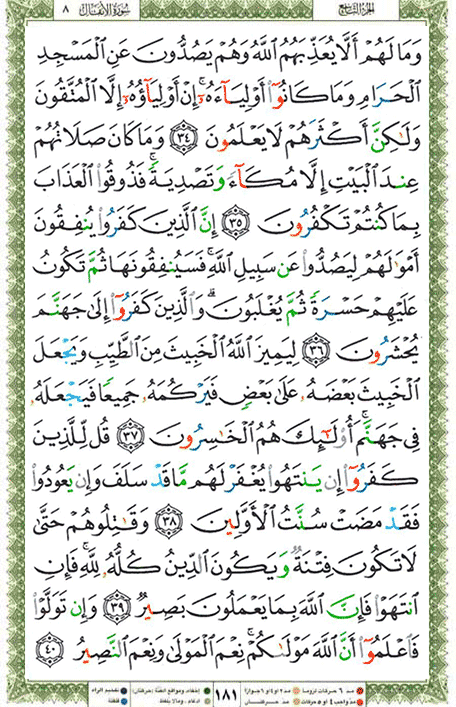 الجزء التاسع ٨ سورة الأنفال
وَمَا لَهُمْ أَلَّا يُعَذِّبَهُمُ ٱللَّهُ وَهُمْ يَصُدُّونَ عَنِ ٱلْمَسْجِدِ
ٱلْحَرَامِ وَمَا كَانُوٓا۟ أَوْلِيَآءَهُۥٓ ۚ إِنْ أَوْلِيَآؤُهُۥٓ إِلَّا ٱلْمُتَّقُونَ
وَلَٰكِنَّ أَكْثَرَهُمْ لَا يَعْلَمُونَ ٣٤ وَمَا كَانَ صَلَاتُهُمْ
عِندَ ٱلْبَيْتِ إِلَّا مُكَآءً وَتَصْدِيَةً ۚ فَذُوقُوا۟ ٱلْعَذَابَ
بِمَا كُنتُمْ تَكْفُرُونَ ٣٥ إِنَّ ٱلَّذِينَ كَفَرُوا۟ يُنفِقُونَ
أَمْوَٰلَهُمْ لِيَصُدُّوا۟ عَن سَبِيلِ ٱللَّهِ ۚ فَسَيُنفِقُونَهَا ثُمَّ تَكُونُ
عَلَيْهِمْ حَسْرَةً ثُمَّ يُغْلَبُونَ ۗ وَٱلَّذِينَ كَفَرُوٓا۟ إِلَىٰ جَهَنَّمَ
يُحْشَرُونَ ٣٦ لِيَمِيزَ ٱللَّهُ ٱلْخَبِيثَ مِنَ ٱلطَّيِّبِ وَيَجْعَلَ
ٱلْخَبِيثَ بَعْضَهُۥ عَلَىٰ بَعْضٍ فَيَرْكُمَهُۥ جَمِيعًا فَيَجْعَلَهُۥ
فِى جَهَنَّمَ ۚ أُو۟لَٰٓئِكَ هُمُ ٱلْخَٰسِرُونَ ٣٧ قُل لِّلَّذِينَ
كَفَرُوٓا۟ إِن يَنتَهُوا۟ يُغْفَرْ لَهُم مَّا قَدْ سَلَفَ وَإِن يَعُودُوا۟
فَقَدْ مَضَتْ سُنَّتُ ٱلْأَوَّلِينَ ٣٨ وَقَٰتِلُوهُمْ حَتَّىٰ
لَا تَكُونَ فِتْنَةٌ وَيَكُونَ ٱلدِّينُ كُلُّهُۥ لِلَّهِ ۚ فَإِنِ
ٱنتَهَوْا۟ فَإِنَّ ٱللَّهَ بِمَا يَعْمَلُونَ بَصِيرٌ ٣٩ وَإِن تَوَلَّوْا۟
فَٱعْلَمُوٓا۟ أَنَّ ٱللَّهَ مَوْلَىٰكُمْ ۚ نِعْمَ ٱلْمَوْلَىٰ وَنِعْمَ ٱلنَّصِيرُ ٤٠
مد ٦ حركات لزوما مد ٢ او ٤ او ٦ جوازا ١٨١ إخفاء، ومواقع الغنة (حركتان) تفخيم الراء
مد واجب ٤ او ٥ حركات مد حركتان ادغام، وما لا يلفظ قلقلة